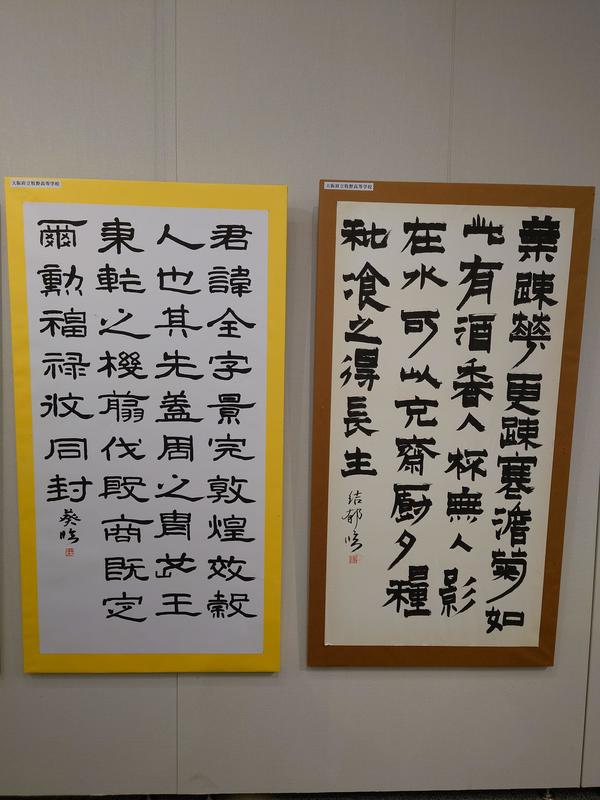 大阪府立牧野高等学校
君諱全字景完敦煌效穀
人也其先蓋周之冑武王
秉乾之機翦伐殷商既定
爾勲福禄攸同封
葵臨
大阪府立牧野高等学校
葉疎華更疎寒澹菊如
此有酒香入杯無人影
在水可以充齋厨夕糧
秕飡之得長生
結郁臨